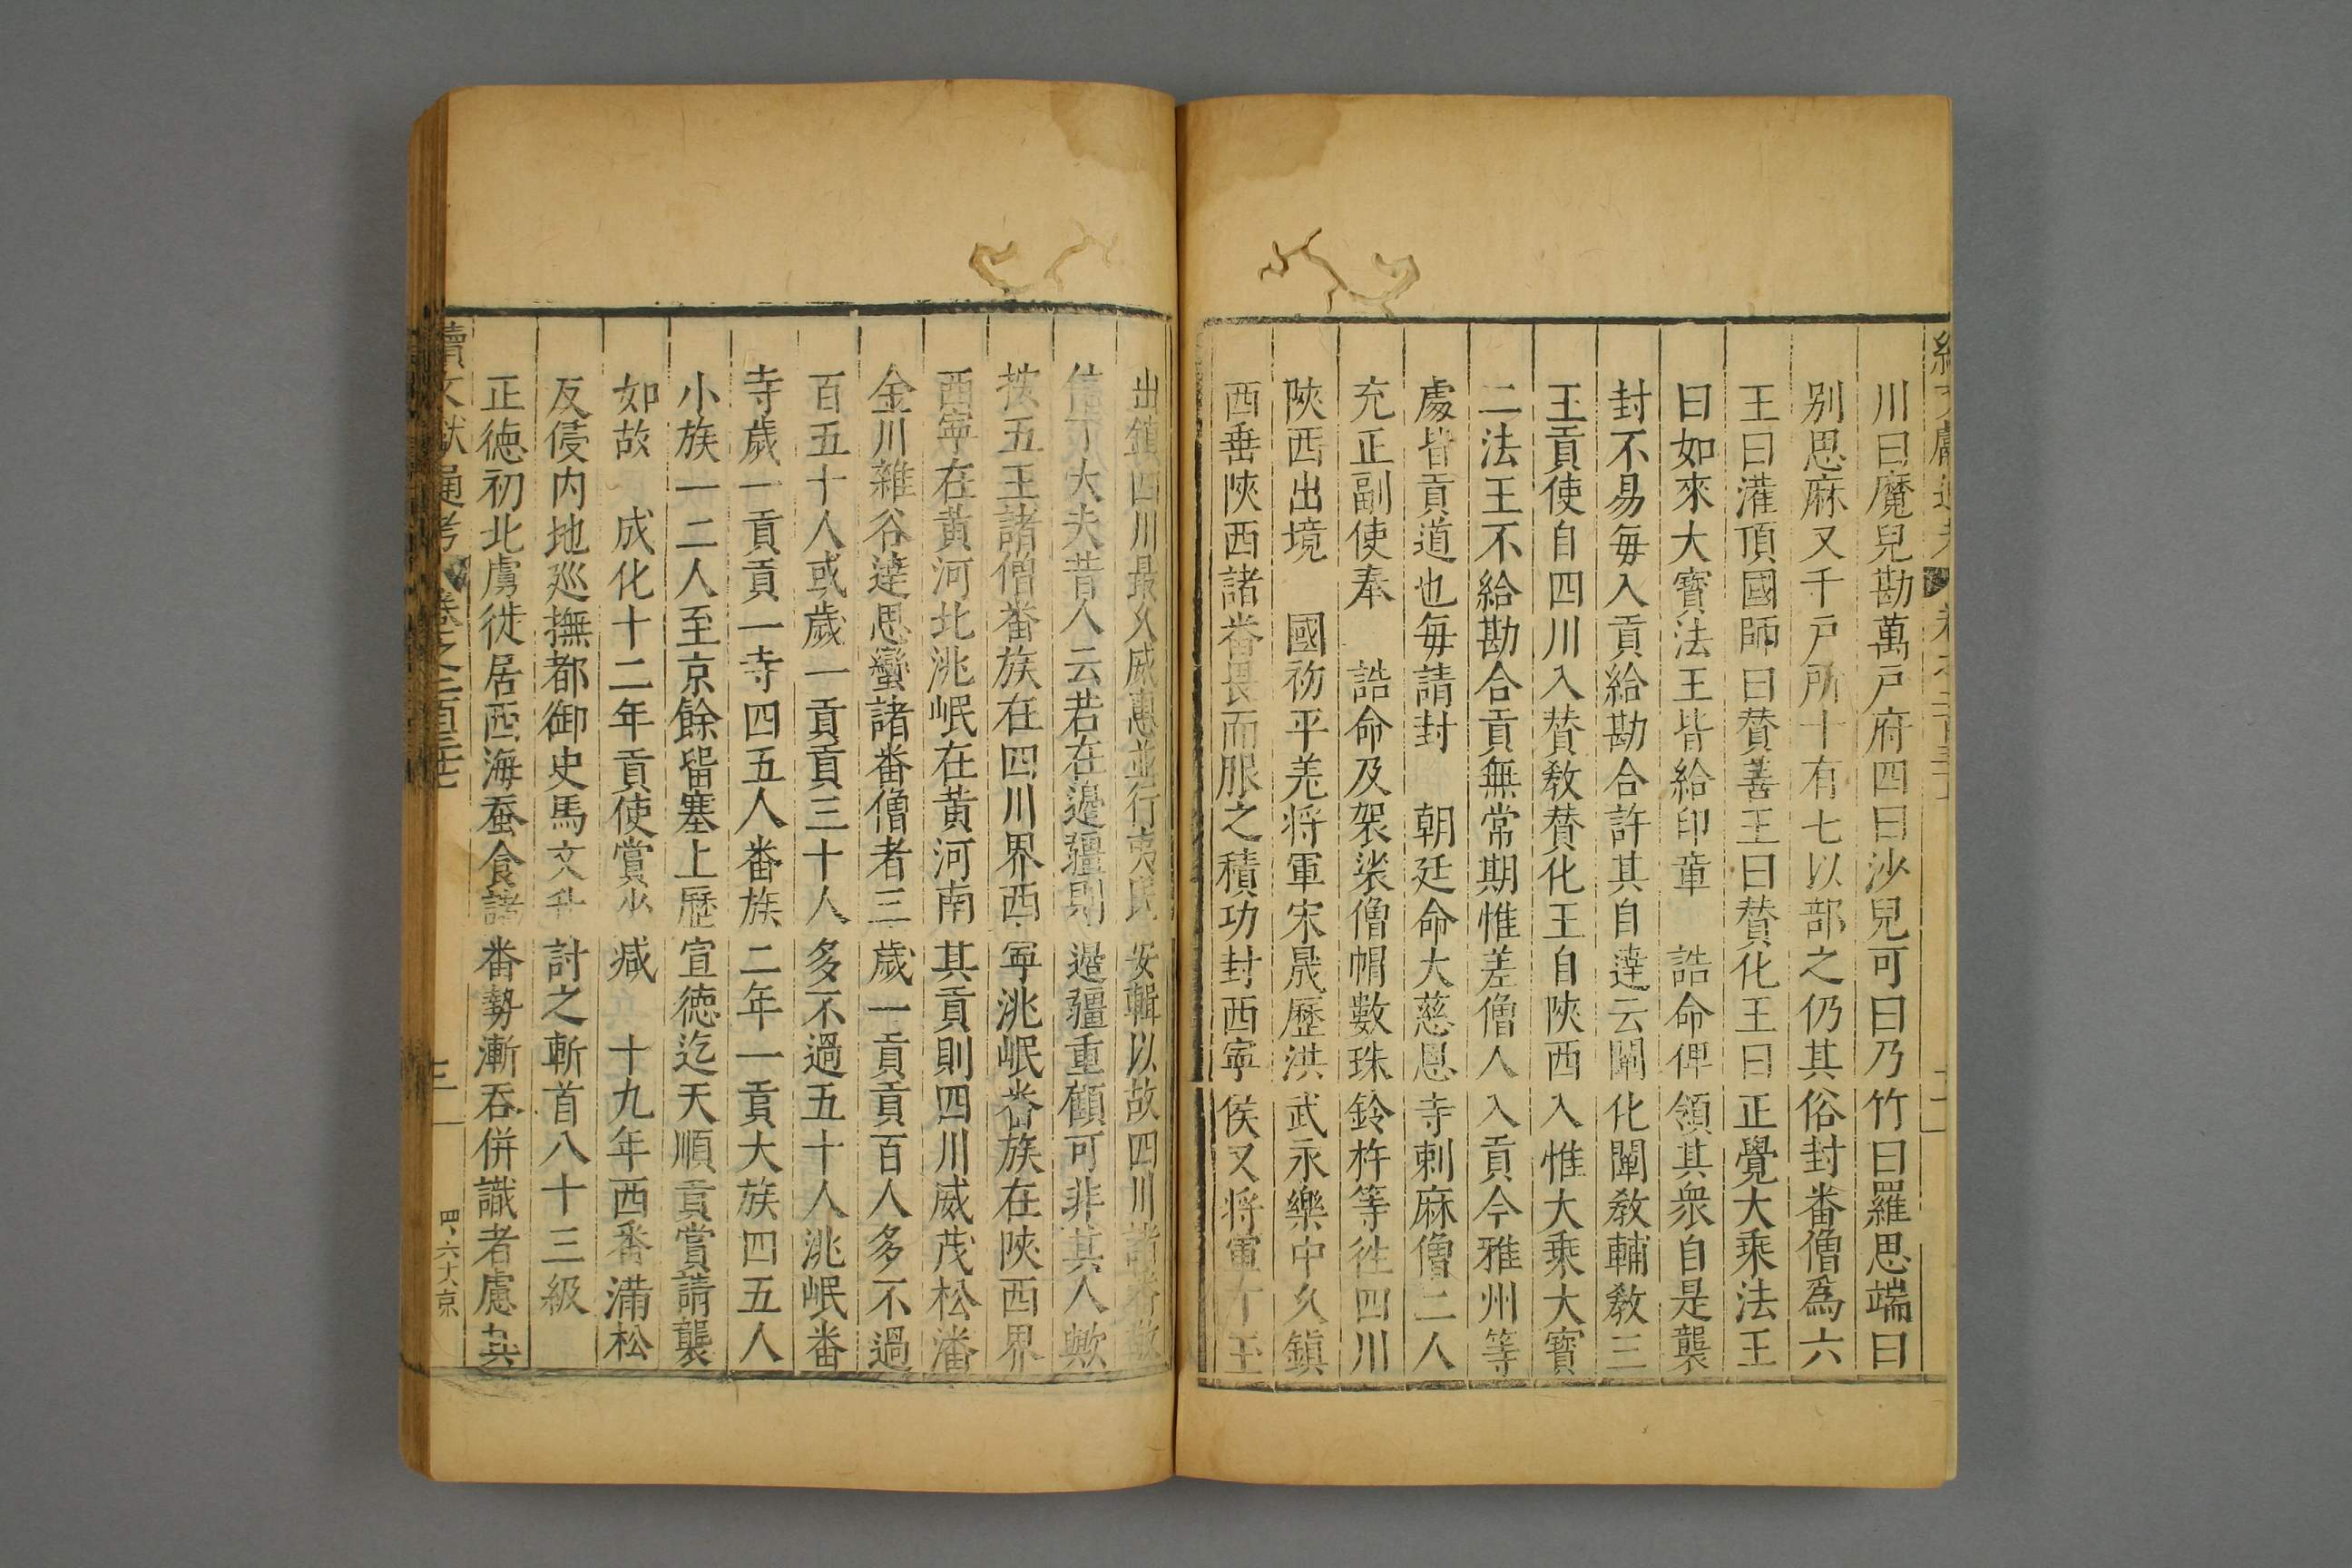 川曰魔兒勘萬戸府四曰沙兒可曰乃竹曰羅思端曰
别思麻又千戸所十有七以部之仍其俗封番僧爲六
王曰灌頂國師曰賛善王曰賛化王曰正覺大乘法王
曰如來大寳法王皆給印章 誥命俾領其衆自是襲
封不易毎入貢給勘合許其自達云闡化闡教輔教三
王貢使自四川入賛教賛化王自陜西入惟大乘大寳
二法王不給勘合貢無常期惟差僧人入貢今雅州等
處皆貢道也毎請封 朝廷命大慈恩寺剌麻僧二人
充正副使奉 誥命及袈裟僧帽數珠鈴杵等徃四川
陜西出境 國初平羌将軍宋晟歷洪武永樂中乆鎮
西垂陜西諸番畏而服之積功封西寧侯又将軍
出鎮四川最乆威惠並行夷民安輯以故四川諸番
信丁大夫昔人云若在邉疆則邉疆重顧可非其人歟
按五王諸僧番族在四川界西寧洮岷番族在陜西界
西寧在黄河北洮岷在黄河南其貢則四川威茂松潘
金川雜谷達思蠻諸番僧者三歲一貢貢百人多不過
百五十人或歲一貢貢三十人多不過五十人洮岷番
寺歲一貢貢一寺四五人番族二年一貢大族四五人
小族一二人至京餘留塞上歷宣徳迄天順貢賞請襲
如故 成化十二年貢使賞少减 十九年西番滿松
反侵内地廵撫都御史馬文升討之斬首八十三級
正徳初北虜徙居西海蚕食諸番勢漸吞併識者慮其
續文献通考 卷之二百三十七 三 四六大京